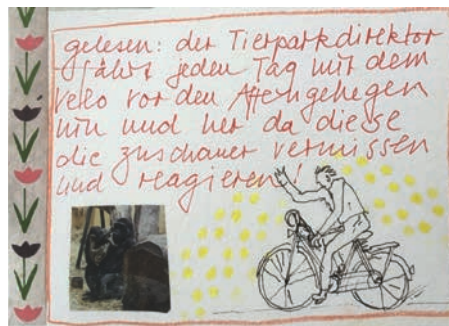 gelesen: der Tierparkdirektor
fährt jeden Tag mit dem
Velo vor den Affengehegen
hin und her da diese
die zuschauer vermissen
und reagieren!